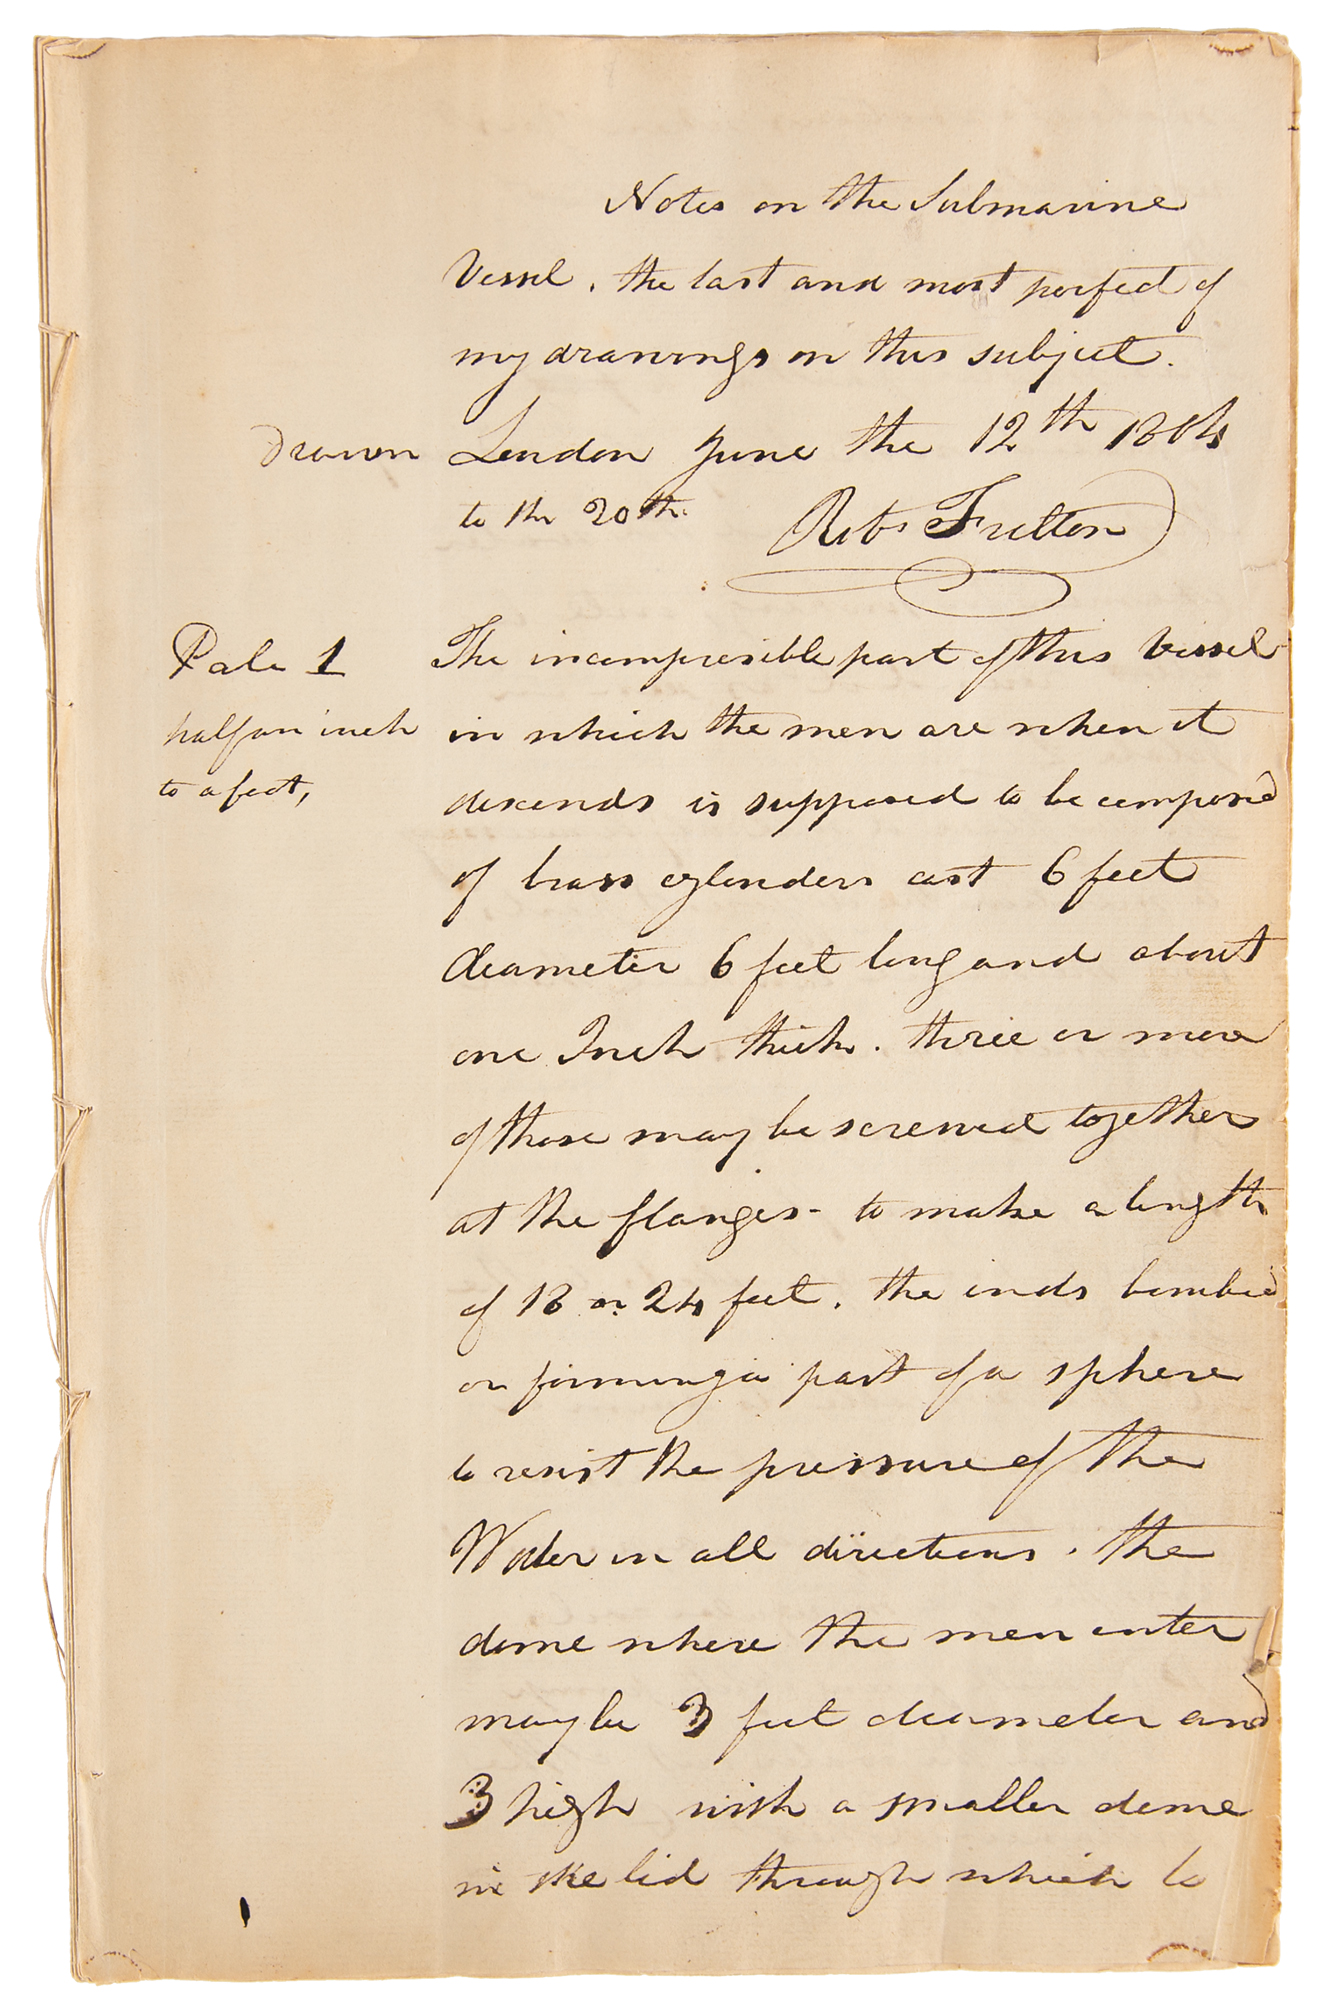 Notes on the Submarine
Vessel, the last and most perfect of
my drawings on this subject.
Drawn London June the 12th 1804
to the 20th Robt Fulton
Pale 1
half an inch
to a foot,
The incompresible part of this Vessel
in which the men are when it
descends is supposed to be composed
of brass cylenders cast 6 feet
diameter 6 feet long and about
one Inch thick. three or more
of those may be screwed together
at the flanges - to make a length
of 18 or 24 feet. the ends bombed
or forming a part of a sphere
to resist the pressure of the
Water in all directions. the
dome where the men enter
may be 3 feet diameter and
3 high with a smaller dome
in the lid through which to